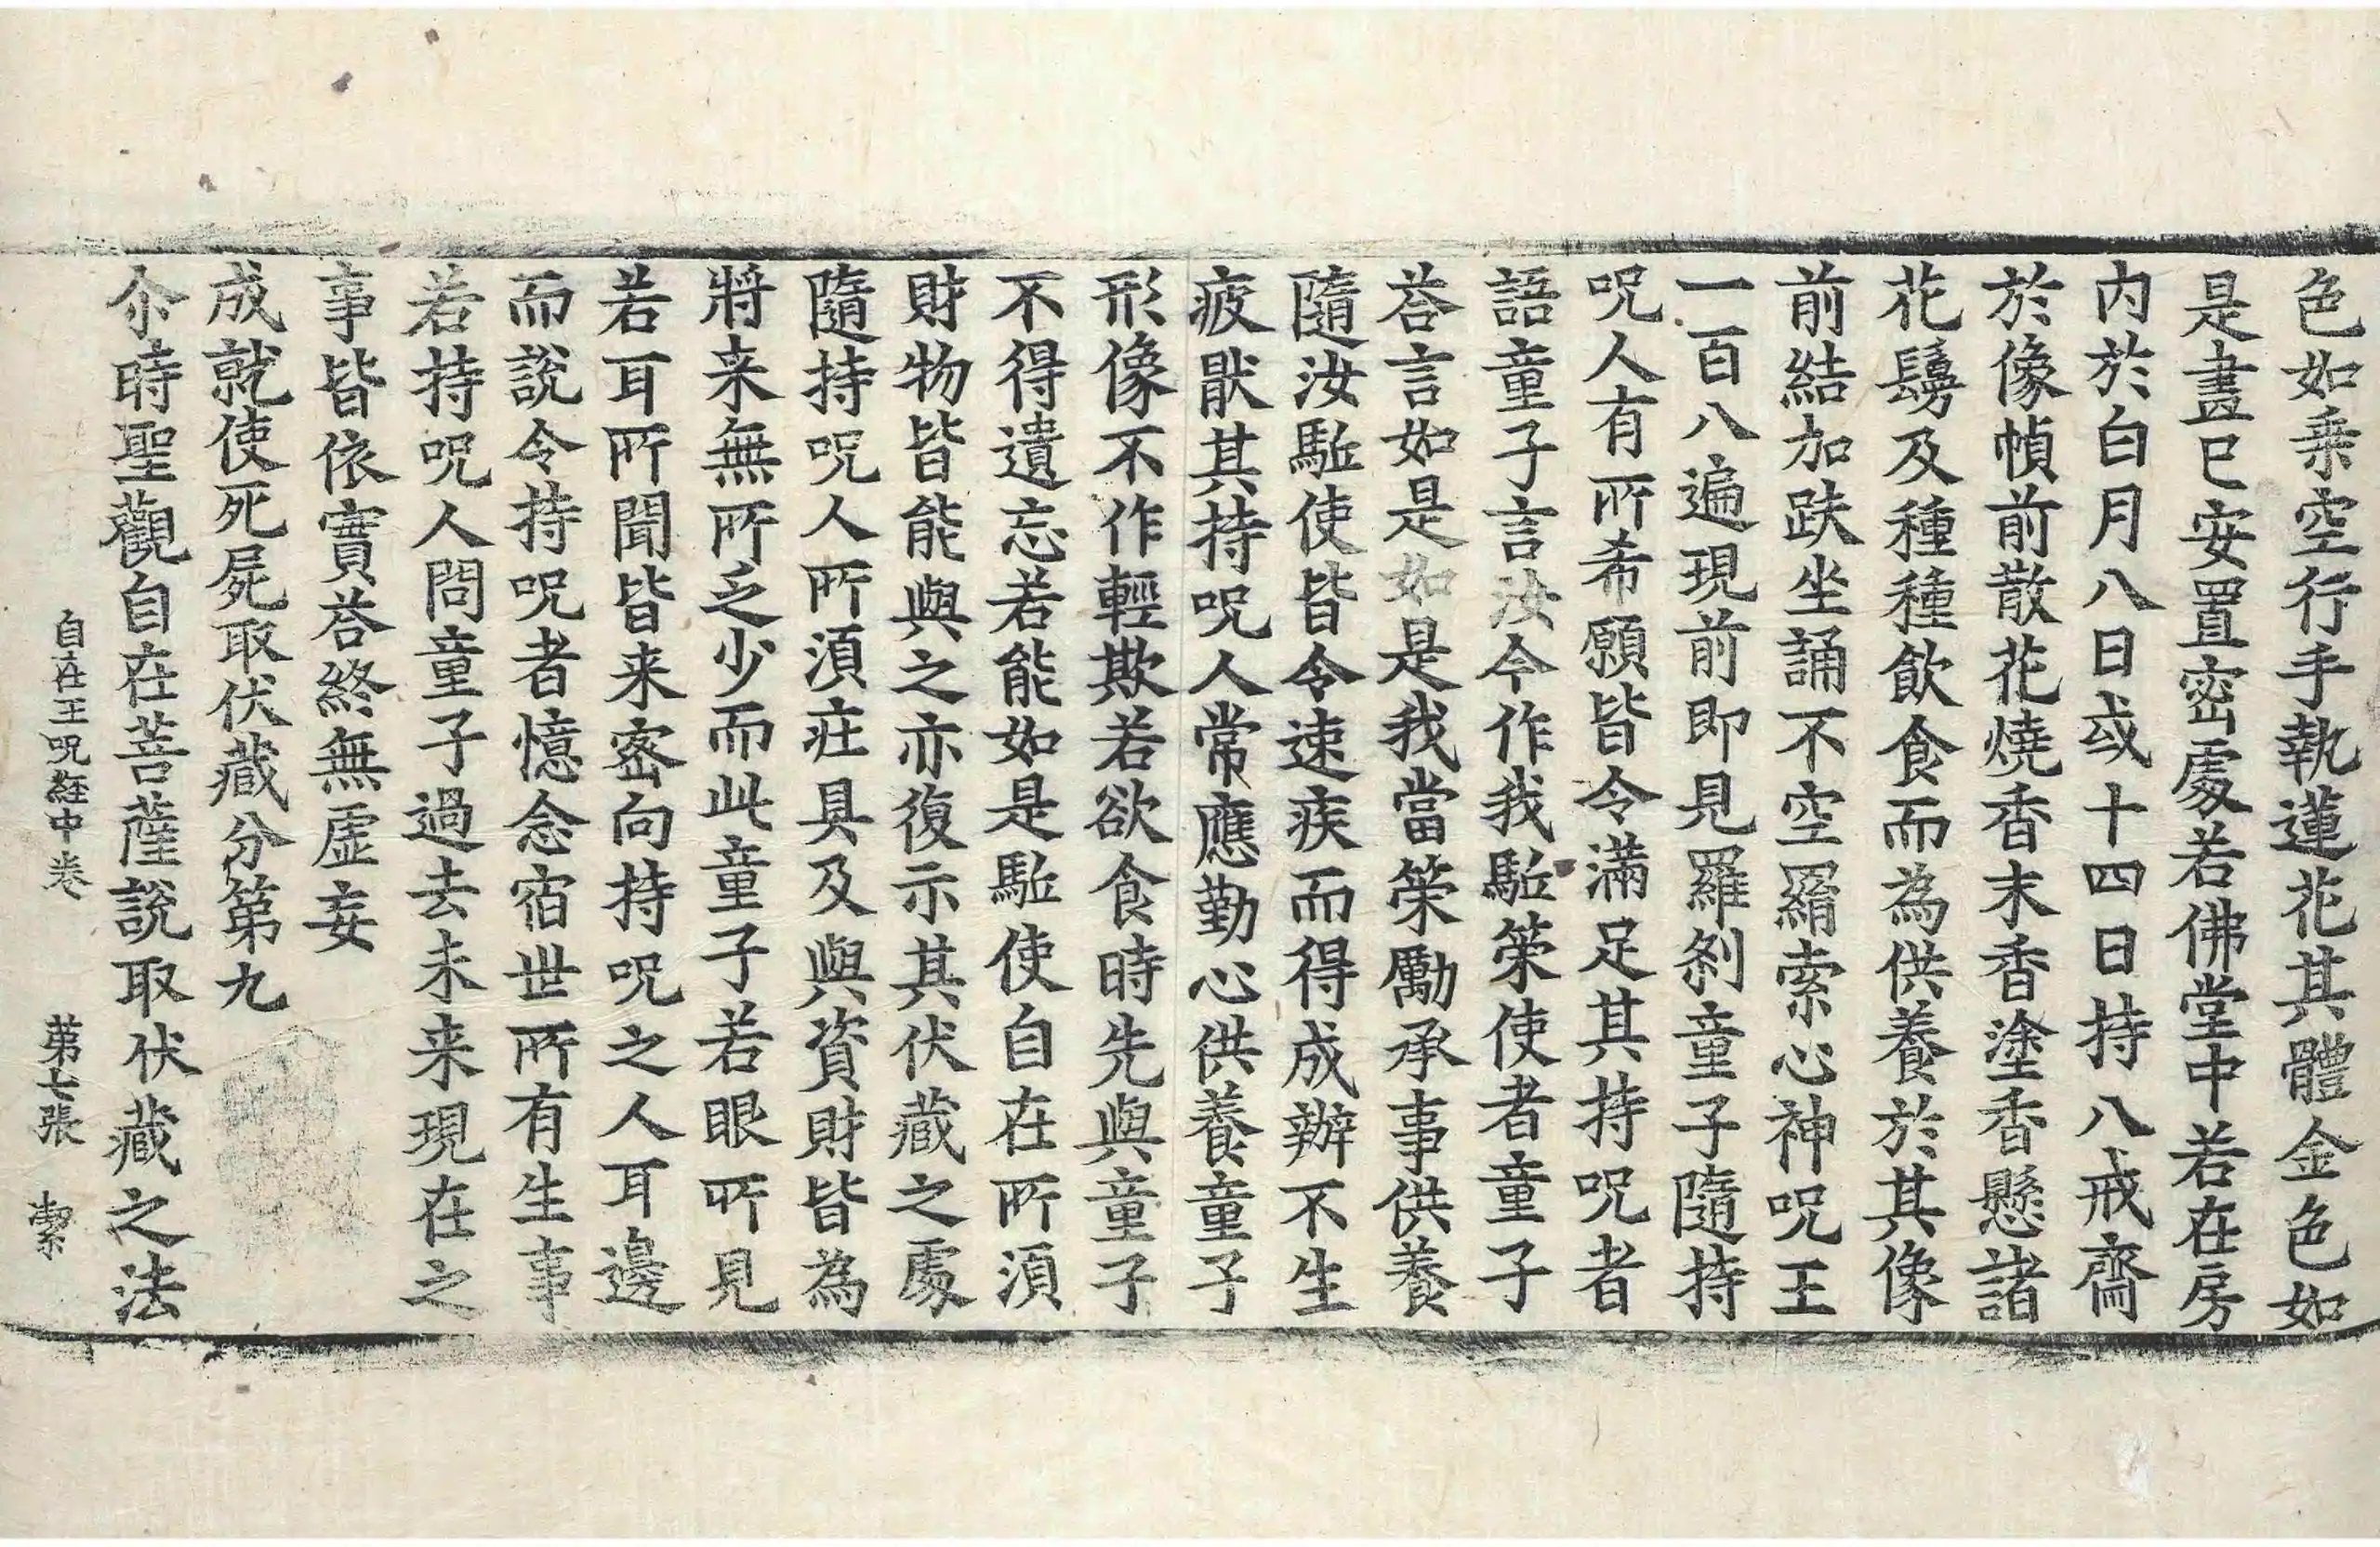 色如乘空行手執蓮花其體金色如
是畫已安置密處若佛堂中若在房
内於白月八日或十四日持八戒齋
於像幀前散花燒香末香塗香懸諸
花鬘及種種飲食而為供養於其像
前結加趺坐誦不空羂索心神呪王
一百八遍現前即見羅刹童子隨持
呪人有所希願皆令滿足其持呪者
語童子言汝今作我駈策使者童子
荅言如是如是我當策勵承事供養
隨汝駈使皆令速疾而得成辦不生
疲猒其持呪人常應勤心供養童子
形像不作輕欺若欲食時先與童子
不得遺忘若能如是駈使自在所湏
財物皆能與之亦復示其伏藏之處
隨持呪人所湏庄具及與資財皆為
將来無所乏少而此童子若眼所見
若耳所聞皆来密向持呪之人耳邊
而說令持呪者憶念宿世所有生事
若持呪人問童子過去未来現在之
事皆依實荅終無虛妄
成就使死屍取伏藏分第九
尒時聖觀自在菩薩說取伏藏之法
自在王呪經中卷 第七張 潔